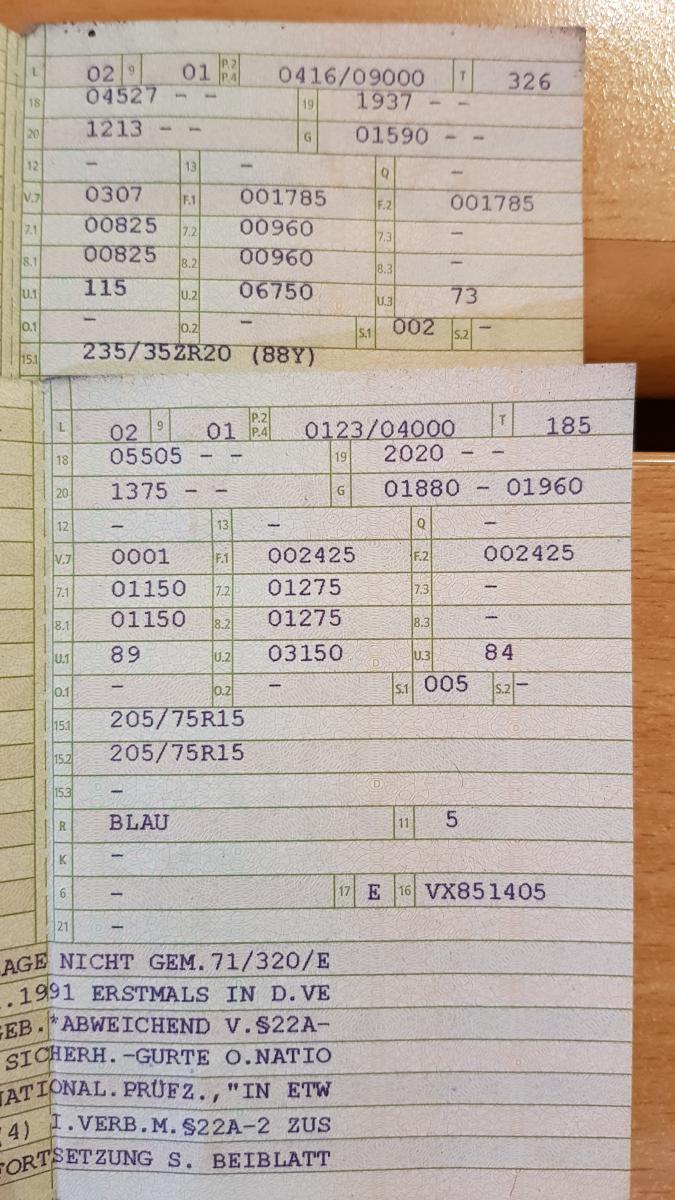 L 02 9 01 P.2 P.4 0416/09000 T 326
18 04527 - - 19 1937 - -
20 1213 - - G 01590 - -
12 - 13 - Q -
V.7 0307 F.1 001785 F.2 001785
7.1 00825 7.2 00960 7.3 -
8.1 00825 8.2 00960 8.3 -
U.1 115 U.2 06750 U.3 73
O.1 - O.2 - S.1 002 S.2 -
15.1 235/35ZR20 (88Y)
L 02 9 01 P.2 P.4 0123/04000 T 185
18 05505 - - 19 2020 - -
20 1375 - - G 01880 - 01960
12 - 13 - Q -
V.7 0001 F.1 002425 F.2 002425
7.1 01150 7.2 01275 7.3 -
8.1 01150 8.2 01275 8.3 -
U.1 89 U.2 03150 U.3 84
O.1 - O.2 - S.1 005 S.2 -
15.1 205/75R15
15.2 205/75R15
15.3 -
R BLAU 11 5
K -
6 - 17 E 16 VX851405
21 -
AGE NICHT GEM.71/320/E
.1991 ERSTMALS IN D.VE
GEB.*ABWEICHEND V.§22A-
SICHERH.-GURTE O.NATIO
NATIONAL.PRÜFZ.,"IN ETW
(4) I.VERB.M.§22A-2 ZUS
FORTSETZUNG S. BEIBLATT